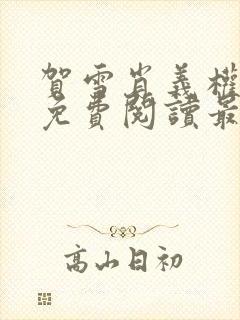 賀雪肖義權
免費閱讀最
高山日初